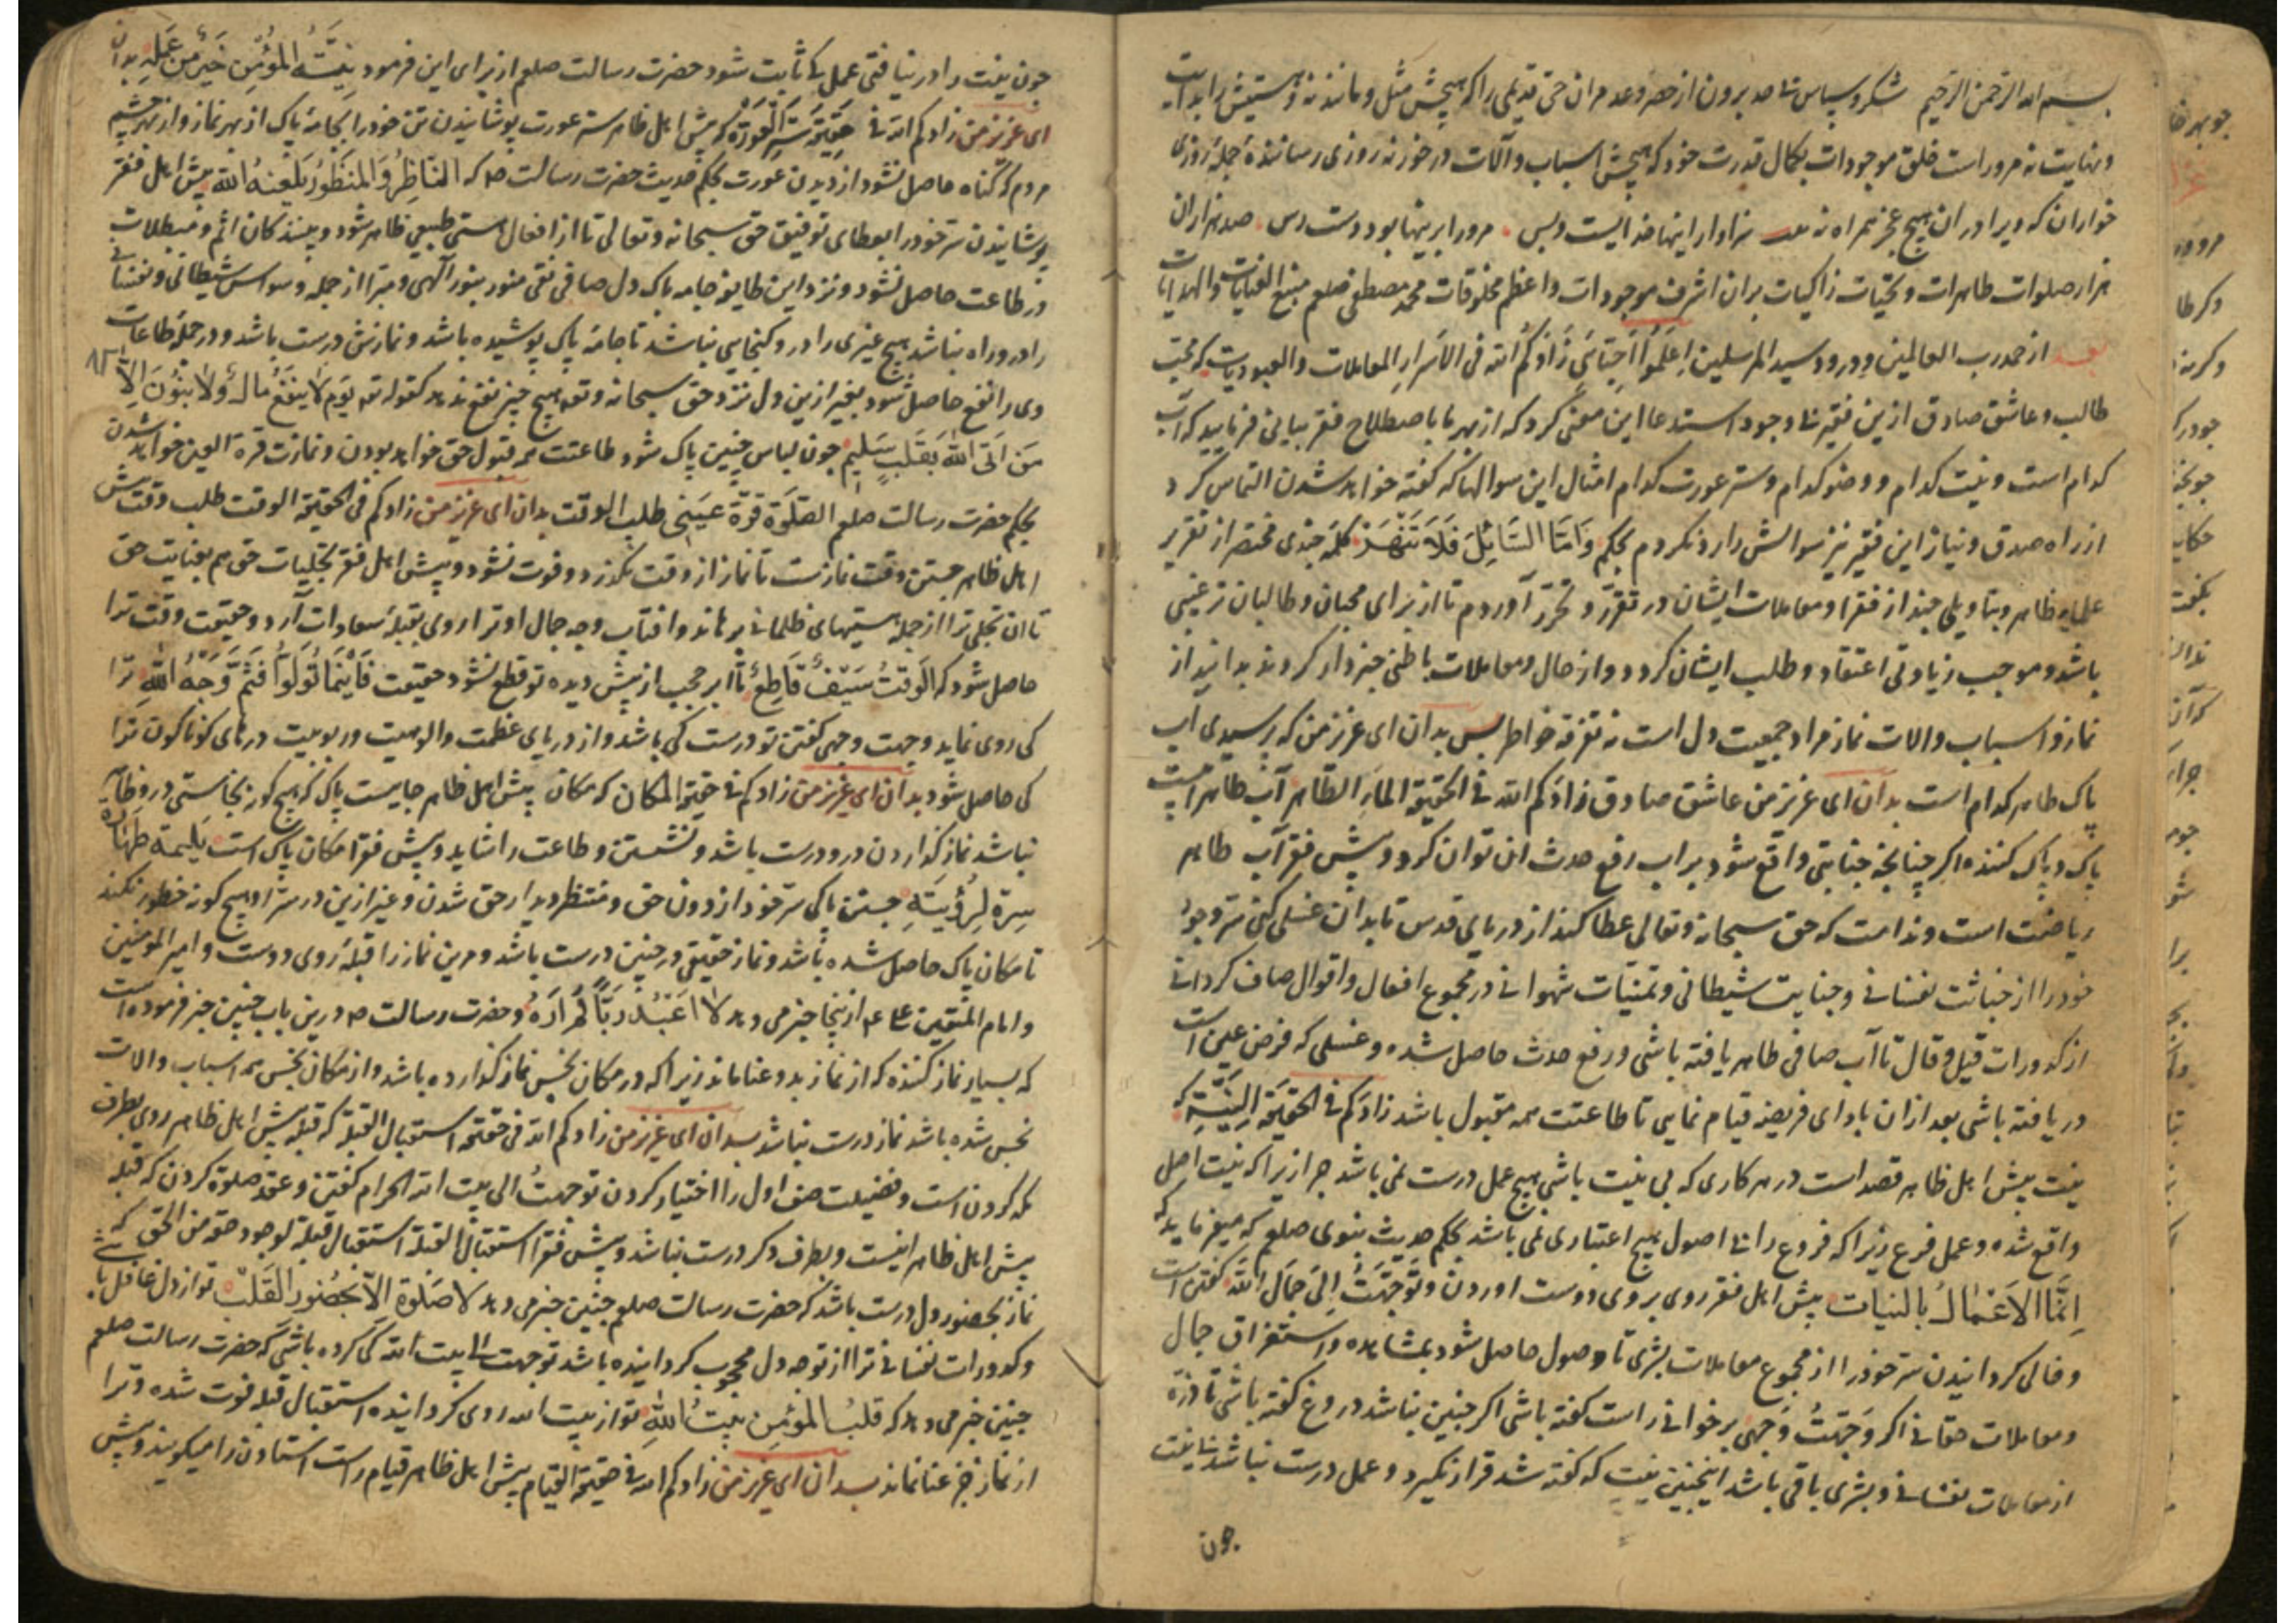 بسم الله الرحمن الرحیم شکر و سپاس بی حد برون از حصر و عد مر ان حی قدیمی را که هیچش مثل و مانند نه و هستیش را بدایت
و نهایت نه مرور است خلق موجودات بکمال قدرت خود که هیچش اسباب و آلات در خور نه روزی رساننده جمله روزی
خواران که ویرا در ان هیچ عجز همراه نه سزاوار اینها خدایست و بس صد هزاران
هزار صلوات طاهرات و تحیات زاکیات بران اشرف موجودات و اعظم مخلوقات محمد مصطفی صلعم منبع العنایات والهدایات
بعد از حمد رب العالمین و درود سید المرسلین اعلموا احبائی زادکم الله فی الاسرار المعاملات والعبودیات که محب
طالب و عاشق صادق ازین فقیر بی وجود استدعا این معنی کرد که از بهر ما باصطلاح فقر بیانی فرمایید که آب
کدام است و نیت کدام و وضو کدام و ستر عورت کدام امثال این سوالها که گفته خواهد شدن التماس کرد
از راه صدق و نیاز این فقیر نیز سوالش را رد نکردم بحکم وَاَمَّا السَّائِلَ فَلَا تَنْهَرْ کلمه چندی مختصر از تقریر
علماء ظاهر و بتاویلی چند از فقرا و معاملات ایشان در تقرر و تحرر آوردم تا از برای محبان و طالبان ترغیبی
باشد و موجب زیادتی اعتقاد و طلب ایشان گردد و از حال و معاملات باطنی خبردار گردند بدانید از
نماز و اسباب والات نماز مراد جمعیت دل است نه تفرقه خواطر پس بدان ای عزیز من که پرسیدی اب
پاک طاهر کدام است بدان ای عزیز من عاشق صادق زادکم الله فی الحقیقة الماء الطاهر آب طاهر
پاک و پاک کننده اگر چنانچه جنابتی واقع شود بر اب رفع حدث ان توان کرد و پیش فقر آب طاهر
ریاضت است و ندامت که حق سبحانه و تعالی عطا کند از دریای قدس تا بدان غسلی کنی سر وجود
خود را از خباثت نفسانی و جنایت شیطانی و تمنیات شهوانی در مجموع افعال و اقوال صاف گردانی
از کدورات قیل و قال تا آب صافی طاهر یافته باشی و رفع حدث حاصل شده و غسلی که فرض عین است
در یافته باشی بعد از ان بادای فریضه قیام نمایی تا طاعتت همه مقبول باشد زادکم فی الحقیقة النیة که
نیت پیش اهل ظاهر قصد است در هر کاری که بی نیت باشی هیچ عمل درست نمی باشد چرا زیرا که نیت اصل
واقع شده و عمل فرع زیرا که فروع را بی اصول هیچ اعتباری نمی باشد بحکم حدیث نبوی صلعم که میفرماید که
اِنَّمَا الاَعْمَالُ بالنیات پیش اهل فقر روی بروی دوست اوردن و توجهت الی جمال الله گفتن است
و خالی گردانیدن سر خود را از مجموع معاملات بشری تا وصول حاصل شود بمشاهده و استغراق جمال
و معاملات حقانی اگر وجهت وجهی بر خوانی راست گفته باشی اگر چنین نباشد دروغ گفته باشی تا ذره
از معاملات نفسانی و بشری باقی باشد اینچنین نیت که گفته شد قرار نگیرد و عمل درست نباشد بی نیت
جون
جون نیت را در نیافتی عمل کی ثابت شود حضرت رسالت صلعم از برای این فرمود نِیَّةُ المُؤْمِنِ خَیْرٌ مِن عَمَلِهِ بدان
ای عزیز من زادکم الله فی حقیقة ستر العورة که پیش اهل ظاهر ستر عورت پوشانیدن تن خود را بجامه پاک از بهر نماز و از بهر چشم
مردم که گناه حاصل نشود از دیدن عورت بحکم حدیث حضرت رسالت صم که الناظر والمنظور یلعنه الله پیش اهل فقر
پوشانیدن سر خود را بعطای توفیق حق سبحانه و تعالی تا از افعال هستی طبیعی ظاهر شود و بینندگان اثم و مبطلات
در طاعت حاصل نشود و نزد این طایفه جامه پاک دل صافی نقی منور بنور آلهی و مبرا از جمله وسواس شیطانی و نفسانی
را در و راه نباشد هیچ غیری را در و گنجایی نباشد تا جامه پاک پوشیده باشد و نمازش درست باشد و در جمله طاعات
وی را نفع حاصل شود بغیر ازین دل نزد حق سبحانه و تعه هیچ چیز نفع ندهد کقوله تعه یَوْمَ لَا یَنْفَعُ مَالٌ وَلَا بَنُونَ اِلَّا
مَن اَتَی اللهَ بِقَلبٍ سَلِیمٍ جون لباس چنین پاک شود طاعتت مر قبول حق خواهد بودن و نمازت قرة العین خواهد شدن
بحکم حضرت رسالت صلعم الصلوة قرة عینی طلب الوقت بدان ای عزیز من زادکم فی الحقیقة الوقت طلب وقت پیش
اهل ظاهر جستن وقت نمازست تا نماز از وقت نگذرد و فوت نشود و پیش اهل فقر تجلیات حق هم بعنایت حق
تا ان تجلی ترا از جمله هستیهای ظلمانی برهاند و افتاب وجه جمال او ترا روی بقبله سعادات آرد و حقیقت وقت ترا
حاصل شود که الوقتُ سَیْفٌ قَاطِعٌ تا ابر حجب از پیش دیده تو قطع نشود حقیقت فَاَیْنَمَا تُوَلُّوا فَثَمَّ وَجْهُ اللهِ ترا
کی روی نماید وجهت وجهی گفتن تو درست کی باشد و از دریای عظمت والوهیت و ربوبیت درهای کوناکون ترا
کی حاصل شود بدان ای عزیز من زادکم فی حقیقة المکان که مکان پیش اهل ظاهر جاییست پاک که هیچ گونه نجاستی درو ظاهر
نباشد نماز گذاردن درو درست باشد و نشستن و طاعت را شاید و پیش فقرا مکان پاک است
سره لرؤیته جستن پاکی سر خود از دون حق و منتظر دیدار حق شدن و غیر ازین در سر او هیچ گونه خطور نکند
تا مکان پاک حاصل شده باشد و نماز حقیقی در چنین درست باشد و مرین نماز را قبله روی دوست و امیر المومنین
و امام المتقین علی ع م ازینجا خبر می دهد لا اَعْبُدُ رَبًّا لَم اَرَهُ و حضرت رسالت صم درین باب چنین خبر فرموده است
که بسیار نماز کننده که از نماز بدو عنا ماند زیرا که در مکان نجس نماز گذارده باشد و از مکان نجس همه اسباب والات
نجس شده باشد نماز درست نباشد بدان ای عزیز من زادکم الله فی حقیقة استقبال القبلة که قبله پیش اهل ظاهر روی بطرف
مکه کردن است و فضیلت صف اول را اختیار کردن توجهتُ الی بیت الله الحرام گفتن و عقد صلوة کردن که قبله
پیش اهل ظاهر اینست و بطرف دگر درست نباشد و پیش فقرا استقبال القبلة استقبال قبلة لوجود حقه من الحق که
نماز بحضور دل درست باشد که حضرت رسالت صلعم چنین خبر می دهد لا صَلوةَ الا بحُضُورِ القَلبِ تو از دل غافل باشی
و کدورات نفسانی ترا از توجه دل محجوب گردانیده باشد توجهت الی بیت الله کی کرده باشی که حضرت رسالت صلعم
چنین خبر می دهد که قلبُ المؤمِن بیتُ اللهِ تو از بیت الله روی گردانیده استقبال قبله فوت شده و ترا
از نماز جز عنا نماند بدان ای عزیز من زادکم الله فی حقیقة القیام پیش اهل ظاهر قیام راست استادن را میگویند و پیش